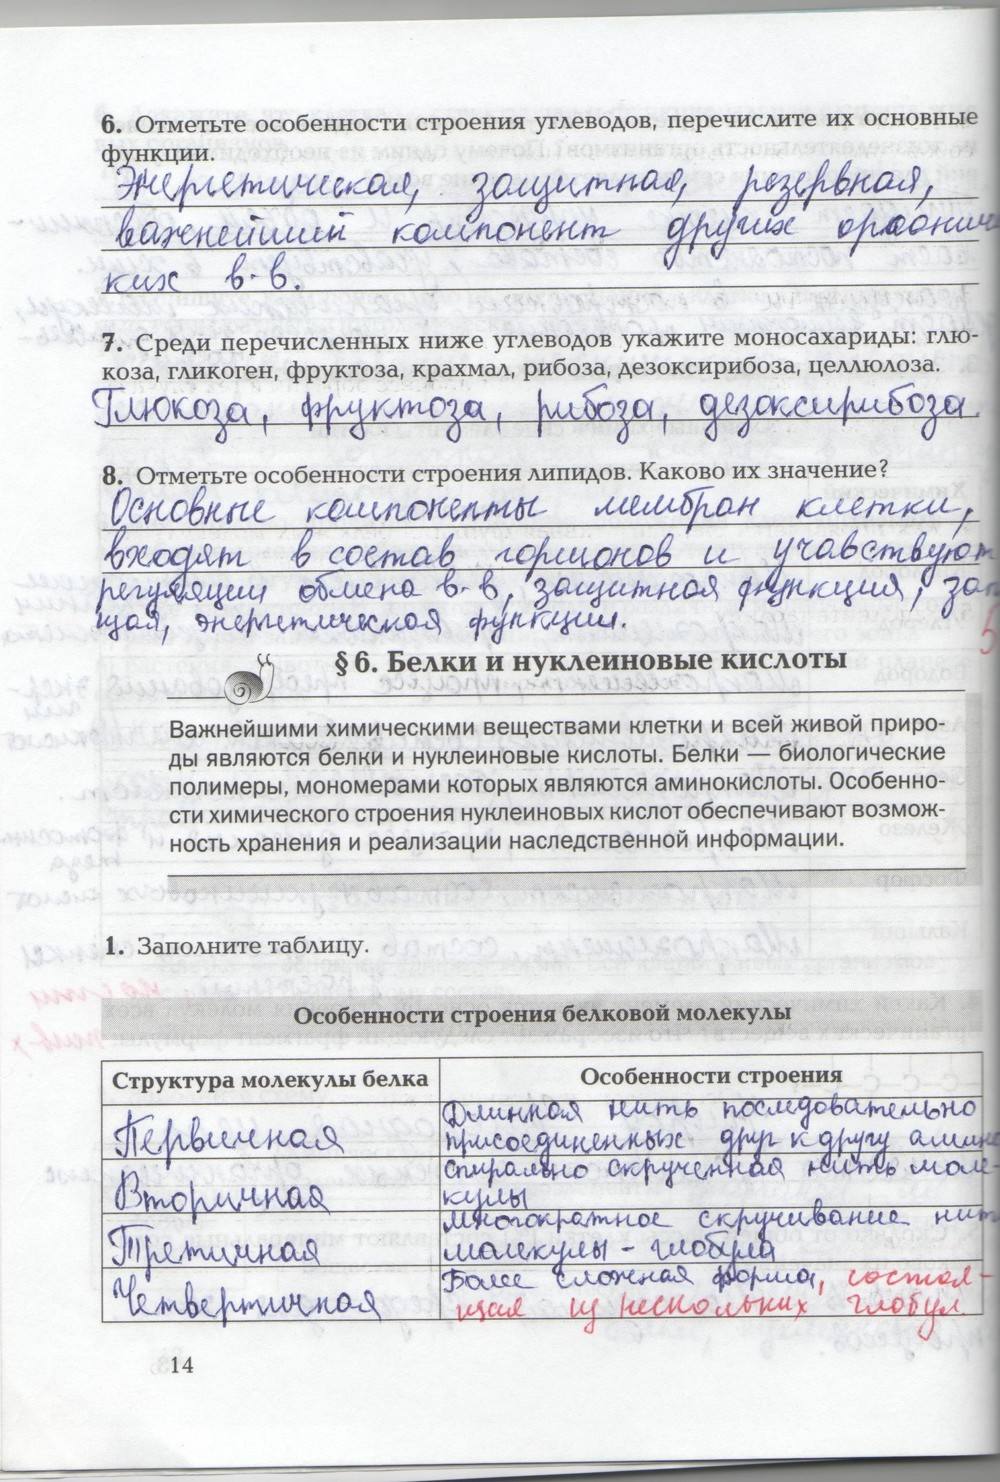 6. Отметьте особенности строения углеводов, перечислите их основные
функции.
Энергетическая, защитная, резервная,
важнейший компонент других органичес
ких в-в.
7. Среди перечисленных ниже углеводов укажите моносахариды: глю-
коза, гликоген, фруктоза, крахмал, рибоза, дезоксирибоза, целлюлоза.
Глюкоза, фруктоза, рибоза, дезоксирибоза
8. Отметьте особенности строения липидов. Каково их значение?
Основные компоненты мембран клетки,
входят в состав гормонов и учавствуют
регуляции обмена в-в, защитная функция, зап
щая, энергетическая функции.
§ 6. Белки и нуклеиновые кислоты
Важнейшими химическими веществами клетки и всей живой приро-
ды являются белки и нуклеиновые кислоты. Белки — биологические
полимеры, мономерами которых являются аминокислоты. Особенно-
сти химического строения нуклеиновых кислот обеспечивают возмож-
ность хранения и реализации наследственной информации.
1. Заполните таблицу.
Особенности строения белковой молекулы
Структура молекулы белка Особенности строения
Первичная Длинная нить последовательно
присоединенных друг к другу амино
Вторичная спирально скрученная нить моле-
кулы
Третичная многократное скручивание нити
молекулы - глобула
Четвертичная Более сложная форма, состоя-
щая из нескольких глобул
14